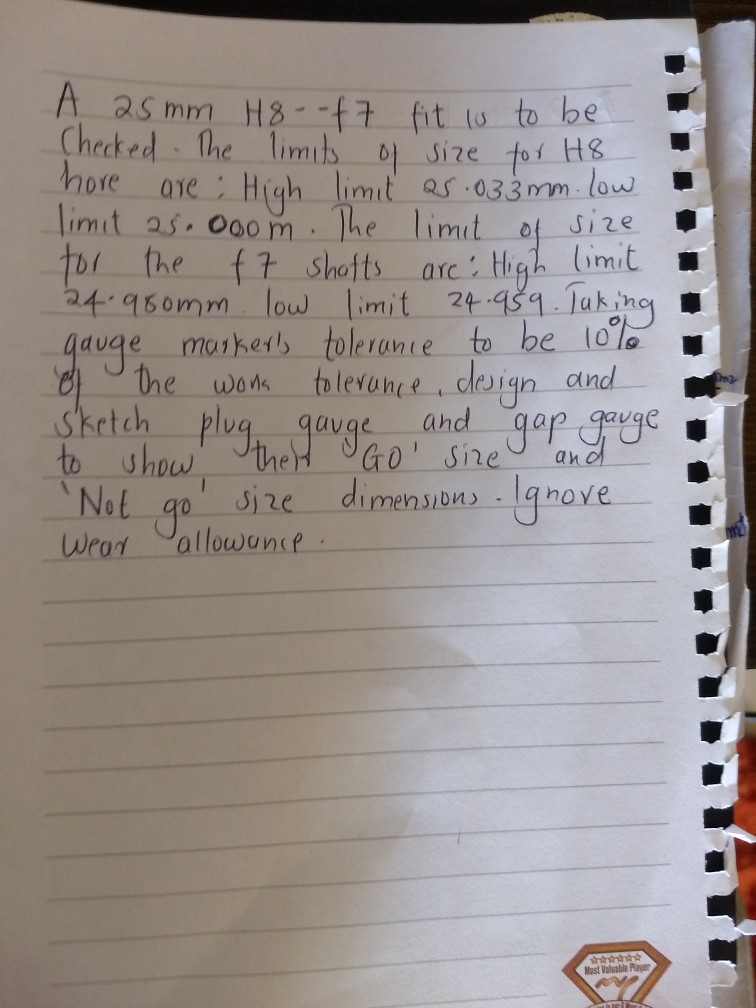 A 25mm H8--f7 fit is to be
Checked. The limits of size for H8
hore are: High limit 25.033mm. low
limit 25.000m. The limit of size
for the f7 shafts are: High limit
24.980mm low limit 24.959. Taking
gauge marker's tolerance to be 10%
of the work tolerance, design and
sketch plug gauge and gap gauge
to show their 'GO' size and
'Not go' size dimensions. Ignore
wear allowance.
Most Valuable Player